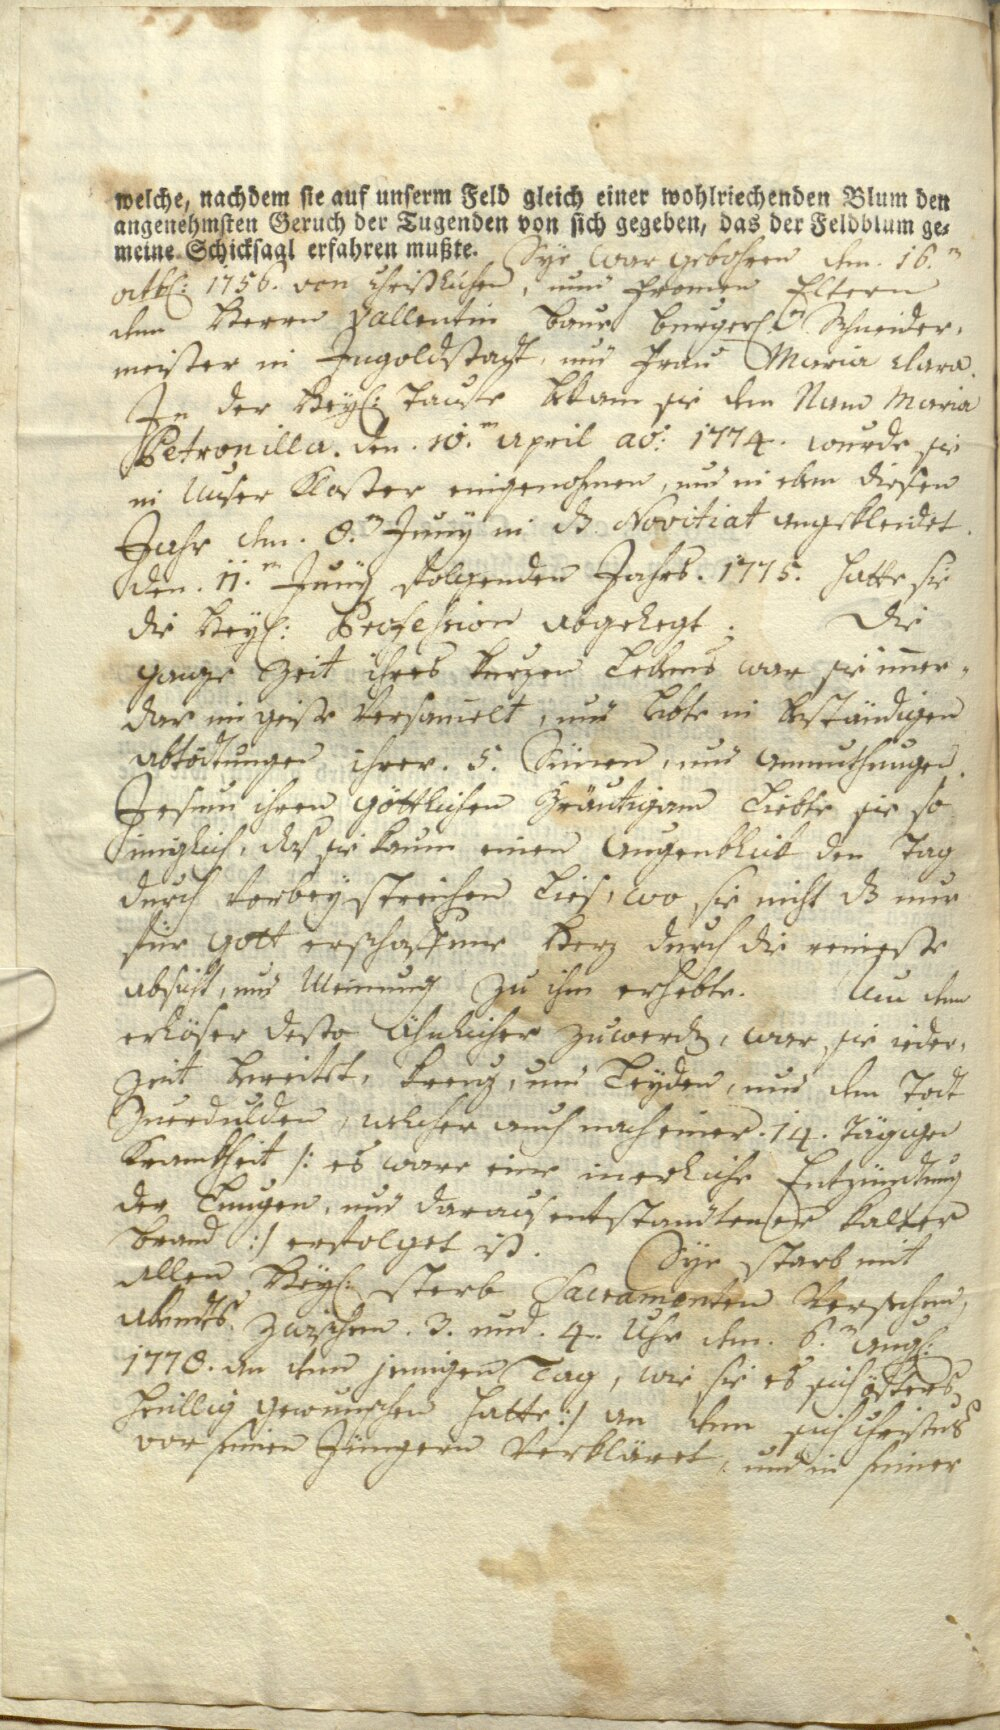 welche, nachdem sie auf unserm Feld gleich einer wohlriechenden Blum den
angenehmsten Geruch der Tugenden von sich gegeben, das der Feldblum ge-
meine Schicksagl erfahren mußte. Sye war gebohren den. 16.n
octb: 1756. von christlichen, und fromen Eltern
dem Herrn Vallentin Baur burgerl: Schneider-
meister in Ingoldstadt, und Frau Maria Clara.
In der Heyl: Tauffe bekam sie den Nam Maria
Petronilla. den. 10.n April ao: 1774. wurde sie
in Unser Kloster eingenohmen, und in eben diesen
Jahr den. 8.n Juny in dz Novitiat angekleidet.
den. 11.n Juny folgenden Jahrs. 1775. hatte sie
die Heyl: Profession abgelegt. Die
ganze Zeit ihres kurzen Lebens war sie imer-
dar im geiste Versamelt, und lebte in beständigen
abtödtungen ihrer. 5. Sinnen, und anmuthungen.
Jesum ihren göttlichen Bräutigam Liebte sie so
iniglich, daß sie kaum einen Augenblick den Tag
durch vorbey streichen Ließ, wo sie nicht dz nur
für Gott erschaffene Herz durch die reineste
absicht, und Meinung zu ihm erhebte. Um dem
erlöser desto ähnlicher zuwerden, war sie ieder-
zeit bereitet, kreuz, und Leyden, und den Todt
Zuerdulden, welcher auch nach einer. 14. tägigen
Krankheit /: es ware eine innerliche Entzündtung
der Lungen, und daraus entstandtener kalter
brand :/ erfolget ist. Sye starb mit
allen Heyl: sterb Sacramenten Versehen,
abends. zwischen. 3. und. 4. Uhr den. 6.n Aug:
1778. an dem jenigen Tag, wie sie es sich öfters
gewunschen hatte :/ an dem sich Christus
vor seinen Jüngern Verkläret, und in seiner